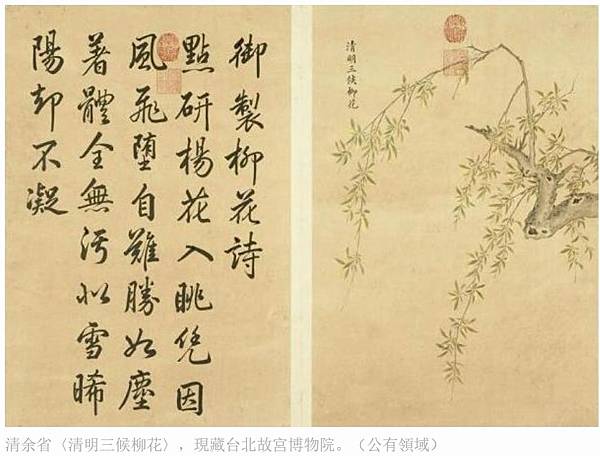 清明三候柳花
御製柳花詩
點研楊花入眺凭因
風飛墮自難勝如塵
著體全無污似雪晞
陽却不凝
清余省〈清明三候柳花〉，現藏台北故宮博物院。（公有領域）